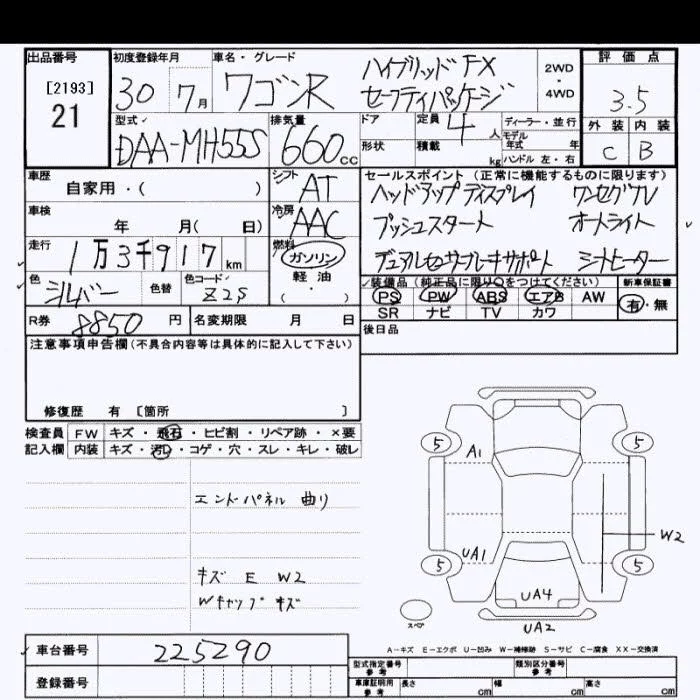 出品番号
[2193]
21
初度登録年月
30 7月
車名・グレード
ワゴンR
ハイブリッドFX
セーフティパッケージ
2WD
・
4WD
評価点
3.5
外装 内装
C B
型式
DAA-MH55S
排気量
660cc
ドア
形状
定員 4人
積載 kg
ディーラー・並行
モデル年式 年
ハンドル 左・右
車歴
自家用・( )
シフト
AT
車検
年 月( 日)
冷房
AAC
走行
1万3千917km
燃料
ガソリン
軽・油
・
色
シルバー
色替
色コード
Z2S
R券 8850円
名変期限 月 日
セールスポイント(正常に機能するものに限ります)
ヘッドアップディスプレイ ワンセグTV
プッシュスタート オートライト
デュアルセンサーブレーキサポート シートヒーター
装備品(純正品に限り○をつけてください)
新車保証書
PS PW ABS エアB AW
有・無
SR ナビ TV カワ
後日品
注意事項申告欄(不具合内容等は具体的に記入して下さい)
修復歴 有 〔箇所 〕
検査員 FW キズ・飛石・ヒビ割・リペア跡・×要
記入欄 内装 キズ・汚レ・コゲ・穴・スレ・キレ・破レ
エンドパネル 曲り
キズ E W2
Wキャップキズ
5 5
A1
W2
UA1
5 5
UA4
スペア
UA2
A-キズ E-エクボ U-凹み W-補修跡 S-サビ C-腐食 XX-交換済
車台番号 225290
登録番号
型式指定番号 参考
類別区分番号 参考
車庫証明用 参考
長さ cm 幅 cm 高さ cm